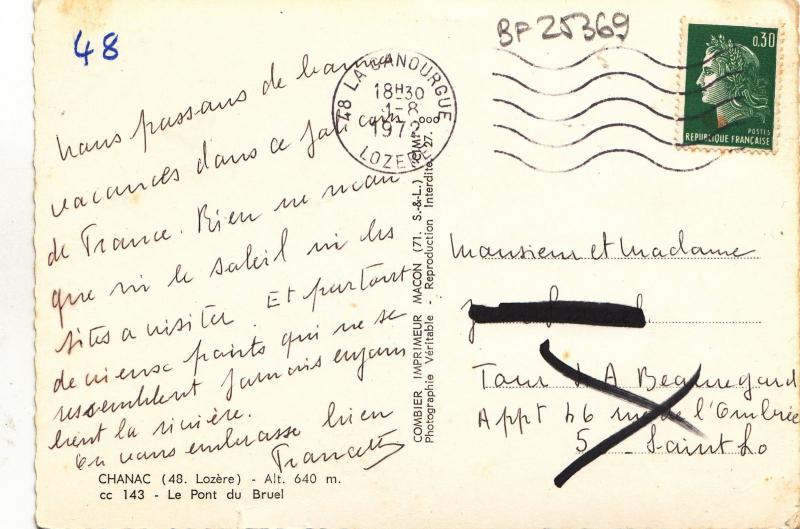 48
BF 25369
0,30
POSTES
REPUBLIQUE FRANÇAISE
48 LA CANOURGUE
18H30
1-8
1972
LOZERE
Nous passons de bonnes
vacances dans ce joli coin
de France. Rien ne manque
que ni le soleil ni les
sites a visiter. Et partout
de vieux ponts qui ne se
ressemblent jamais enjam
bent la rivière.
On vous embrasse bien
CHANAC (48. Lozère) - Alt. 640 m.
cc 143 - Le Pont du Bruel
COMBIER IMPRIMEUR MACON (71. S.-&-L.) "CIM"
Photographie Véritable - Reproduction Interdite 27.
Monsieur et Madame
Tour A Beauregard
Appt 46 de l'Ombrée
5 - Saint Lo